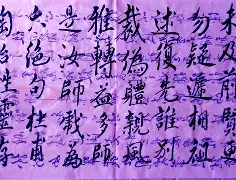 未及前賢更
勿疑遞相祖
述復先誰別
裁偽體親風
雅轉益多師
是汝師戲為
六絕句杜甫
陶冶性靈存